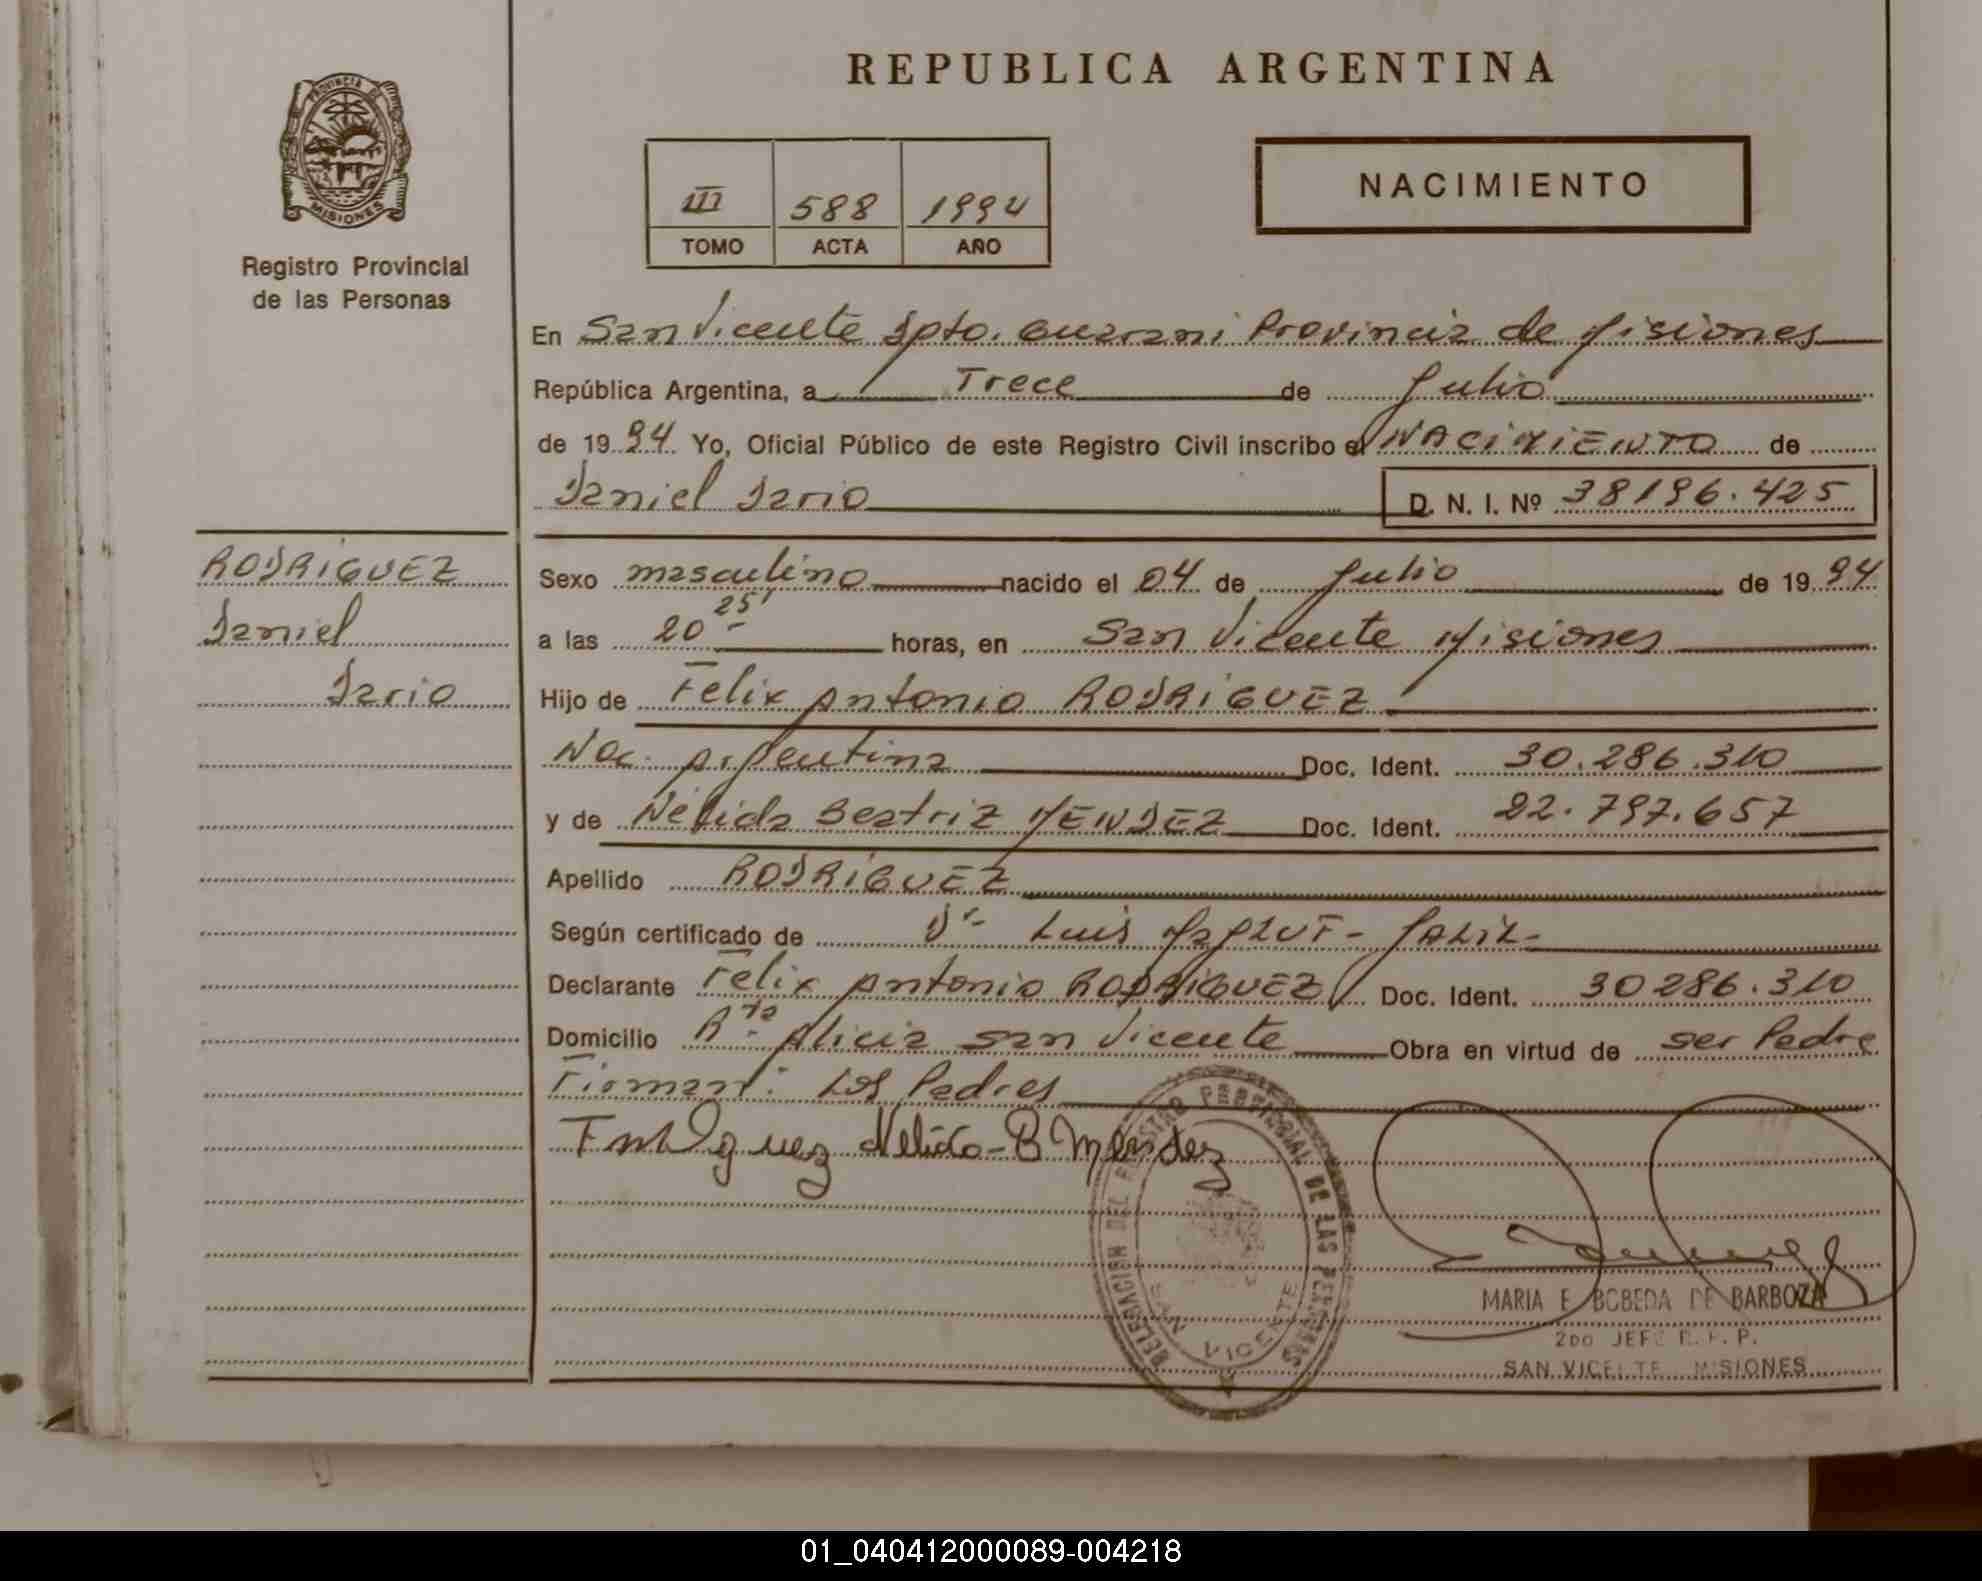 PROVINCIA DE
MISIONES
Registro Provincial
de las Personas
REPUBLICA ARGENTINA
III 588 1994
TOMO ACTA AÑO
NACIMIENTO
En San Vicente Dpto. Guarani Provincia de Misiones
República Argentina, a Trece de Julio
de 1994 Yo, Oficial Público de este Registro Civil inscribo el NACIMIENTO de
Daniel Dario D. N. I. Nº 38196.425
RODRIGUEZ
Daniel
Dario
Sexo masculino nacido el 04 de Julio de 1994
a las 20 25' horas, en San Vicente Misiones
Hijo de Felix Antonio RODRIGUEZ
Nac. Argentina Doc. Ident. 30.286.310
y de Nélida Beatriz MENDEZ Doc. Ident. 22.797.657
Apellido RODRIGUEZ
Según certificado de Dr- Luis
Declarante Felix Antonio RODRIGUEZ Doc. Ident. 30286.310
Domicilio Alicia San Vicente Obra en virtud de ser Padre
Firman: Los Padres
Nelida-B Mendez
DELEGACION DEL REGISTRO PROVINCIAL DE LAS PERSONAS
SAN VICENTE
MARIA E BOBEDA DE BARBOZA
2DO JEFE R. P. P.
SAN VICENTE MISIONES
01_040412000089-004218